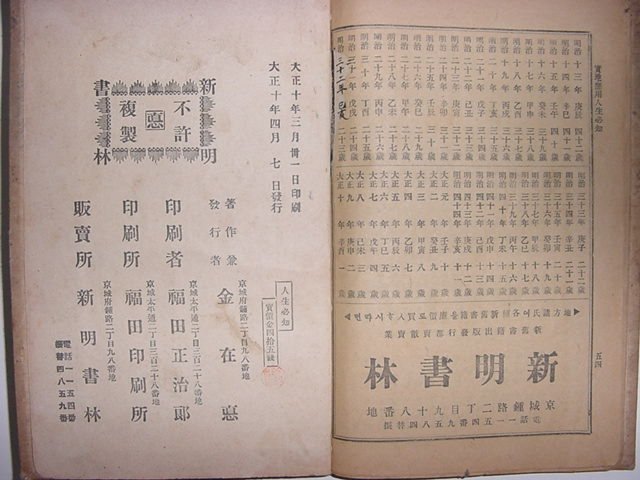 實地應用人生必知
五四
明治十三年 庚辰 四十二歲
明治十四年 辛巳 四十一歲
明治十五年 壬午 四十歲
明治十六年 癸未 三十九歲
明治十七年 甲申 三十八歲
明治十八年 乙酉 三十七歲
明治十九年 丙戌 三十六歲
明治二十年 丁亥 三十五歲
明治二十一年 戊子 三十四歲
明治二十二年 己丑 三十三歲
明治二十三年 庚寅 三十二歲
明治二十四年 辛卯 三十一歲
明治二十五年 壬辰 三十歲
明治二十六年 癸巳 二十九歲
明治二十七年 甲午 二十八歲
明治二十八年 乙未 二十七歲
明治二十九年 丙申 二十六歲
明治三十年 丁酉 二十五歲
明治三十一年 戊戌 二十四歲
明治三十二年 己亥 二十三歲
明治三十三年 庚子 二十二歲
明治三十四年 辛丑 二十一歲
明治三十五年 壬寅 二十歲
明治三十六年 癸卯 十九歲
明治三十七年 甲辰 十八歲
明治三十八年 乙巳 十七歲
明治三十九年 丙午 十六歲
明治四十年 丁未 十五歲
明治四十一年 戊申 十四歲
明治四十二年 己酉 十三歲
明治四十三年 庚戌 十二歲
明治四十四年 辛亥 十一歲
大正元年 壬子 十歲
大正二年 癸丑 九歲
大正三年 甲寅 八歲
大正四年 乙卯 七歲
大正五年 丙辰 六歲
大正六年 丁巳 五歲
大正七年 戊午 四歲
大正八年 己未 三歲
大正九年 庚申 二歲
大正十年 辛酉 一歲
新舊書籍出版發行都賣散賣業
新明書林
京城鍾路二丁目九十八番地
大正十年三月卅一日印刷
大正十年四月七日發行
新明書林
不許複製
悳
人生必知
實價金四拾五錢
著作兼發行者 金在悳
京城府鍾路二丁目九八番地
印刷者 福田正治郎
京城太平通二丁目三百二十八番地
印刷所 福田印刷所
京城太平通二丁目三百二十八番地
販賣所 新明書林
京城府鍾路二丁目九八番地
電話一一五四番
振替四八五九番